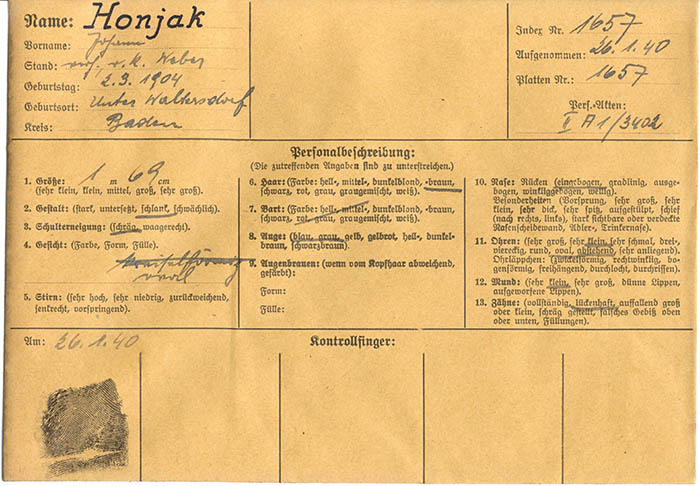 Name: Honjak
Vorname: Johann
Stand: verh. v. k. Weber
Geburtstag: 2.3.1904
Geburtsort: Unter Waltersdorf
Kreis: Baden
Index Nr. 1657
Aufgenommen: 26.1.40
Platten Nr.: 1657
Pers.-Akten:
II A 1/3402
Personalbeschreibung:
(Die zutreffenden Angaben sind zu unterstreichen.)
1. Größe: 1 m 69 cm
(sehr klein, klein, mittel, groß, sehr groß).
2. Gestalt: (stark, untersetzt, schlank, schwächlich).
3. Schulterneigung: (schräg, waagerecht).
4. Gesicht: (Farbe, Form, Fülle).
oval
5. Stirn: (sehr hoch, sehr niedrig, zurückweichend,
senkrecht, vorspringend).
6. Haar: (Farbe: hell-, mittel-, dunkelblond, -braun,
schwarz, rot, grau, graugemischt, weiß).
7. Bart: (Farbe: hell-, mittel-, dunkelblond, -braun,
schwarz, rot, grau, graugemischt, weiß).
8. Auge: (blau, grau, gelb, gelbrot, hell-, dunkel-
braun, schwarzbraun).
9. Augenbrauen: (wenn vom Kopfhaar abweichend,
gefärbt):
Form:
Fülle:
10. Nase: Rücken (eingebogen, gradlinig, ausge-
bogen, winkliggebogen, wellig).
Besonderheiten (Vorsprung, sehr groß, sehr
klein, sehr dick, sehr spitz, aufgestülpt, schief
(nach rechts, links), stark sichtbare oder verdeckte
Nasenscheidewand, Adler-, Trinkernase).
11. Ohren: (sehr groß, sehr klein, sehr schmal, drei-,
viereckig, rund, oval, abstehend, sehr anliegend).
Ohrläppchen: (zwickelförmig, rechtwinklig, bo-
genförmig, freihängend, durchlocht, durchrissen).
12. Mund: (sehr klein, sehr groß, dünne Lippen,
aufgeworfene Lippen).
13. Zähne: (vollständig, lückenhaft, auffallend groß
oder klein, schräg gestellt, falsches Gebiß oben
oder unten, Füllungen).
Am: 26.1.40
Kontrollfinger: